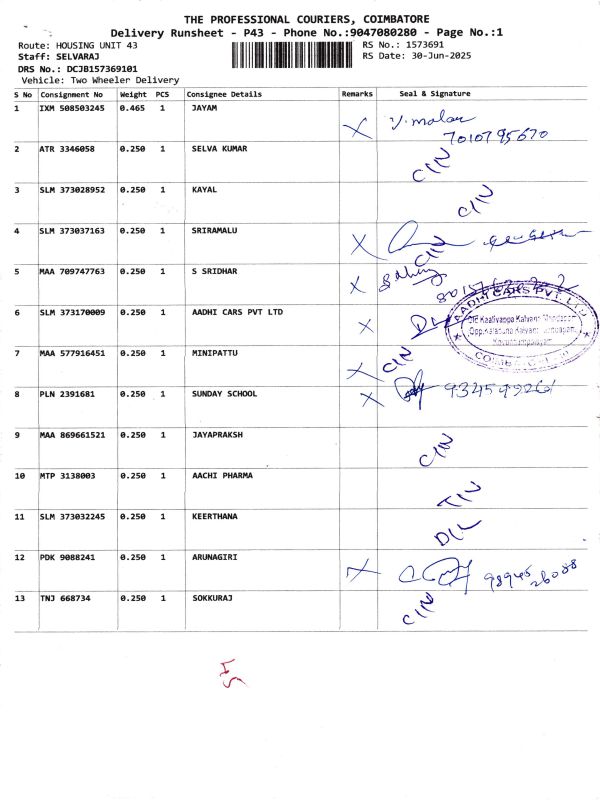 THE PROFESSIONAL COURIERS, COIMBATORE
Delivery Runsheet - P43 - Phone No.:9047080280 - Page No.:1
Route: HOUSING UNIT 43 RS No.: 1573691
Staff: SELVARAJ RS Date: 30-Jun-2025
DRS No.: DCJB157369101
Vehicle: Two Wheeler Delivery
S No Consignment No Weight PCS Consignee Details Remarks Seal & Signature
1 IXM 508503245 0.465 1 JAYAM X V. malar
7010795670
2 ATR 3346058 0.250 1 SELVA KUMAR CIN
3 SLM 373028952 0.250 1 KAYAL CIN
4 SLM 373037163 0.250 1 SRIRAMALU X CIN
5 MAA 709747763 0.250 1 S SRIDHAR X
6 SLM 373170009 0.250 1 AADHI CARS PVT LTD X AADHI CARS PVT. LTD
7 MAA 577916451 0.250 1 MINIPATTU X CIN
8 PLN 2391681 0.250 1 SUNDAY SCHOOL X
9 MAA 869661521 0.250 1 JAYAPRAKSH CIN
10 MTP 3138003 0.250 1 AACHI PHARMA TIN
11 SLM 373032245 0.250 1 KEERTHANA DIL
12 PDK 9088241 0.250 1 ARUNAGIRI X 98945
26088
13 TNJ 668734 0.250 1 SOKKURAJ CIN